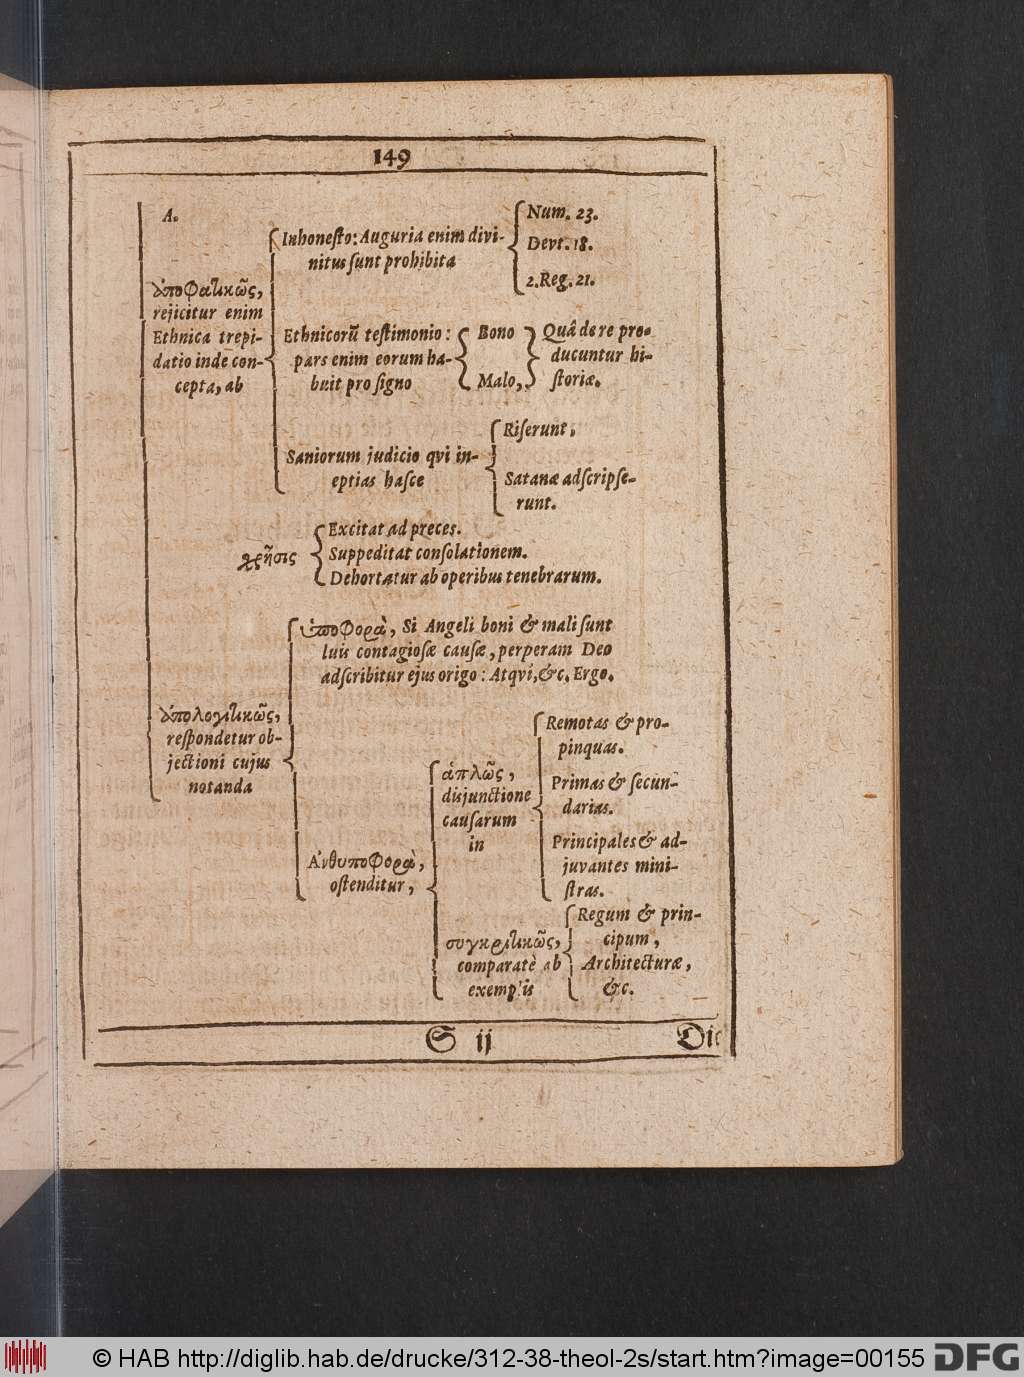 149
A.
ἀποφατικῶς,
rejicitur enim
Ethnica trepi-
datio inde con-
cepta, ab
Inhonesto: Auguria enim divi-
nitus sunt prohibita
Num. 23.
Devt. 18.
2. Reg. 21.
Ethnicorũ testimonio:
pars enim eorum ha-
buit pro signo
Bono
Malo,
Quâ de re pro-
ducuntur hi-
storiæ.
Saniorum judicio qvi in-
eptias hasce
Riserunt.
Satanæ adscripse-
runt.
χρῆσις
Excitat ad preces.
Suppeditat consolationem.
Dehortatur ab operibus tenebrarum.
ἀπολογιτικῶς,
respondetur ob-
jectioni cujus
notanda
ὑποφορὰ, Si Angeli boni & mali sunt
luis contagiosæ causæ, perperam Deo
adscribitur ejus origo: Atqvi, &c. Ergo.
Ἀνθυποφορὰ,
ostenditur,
ἁπλῶς,
disjunctione
causarum
in
Remotas & pro-
pinquas.
Primas & secun-
darias.
Principales & ad-
juvantes mini-
stras.
συγκριτικῶς,
comparatè ab
exemplis
Regum & prin-
cipum,
Architecturæ,
&c.
S ij
Die
© HAB http://diglib.hab.de/drucke/312-38-theol-2s/start.htm?image=00155
DFG